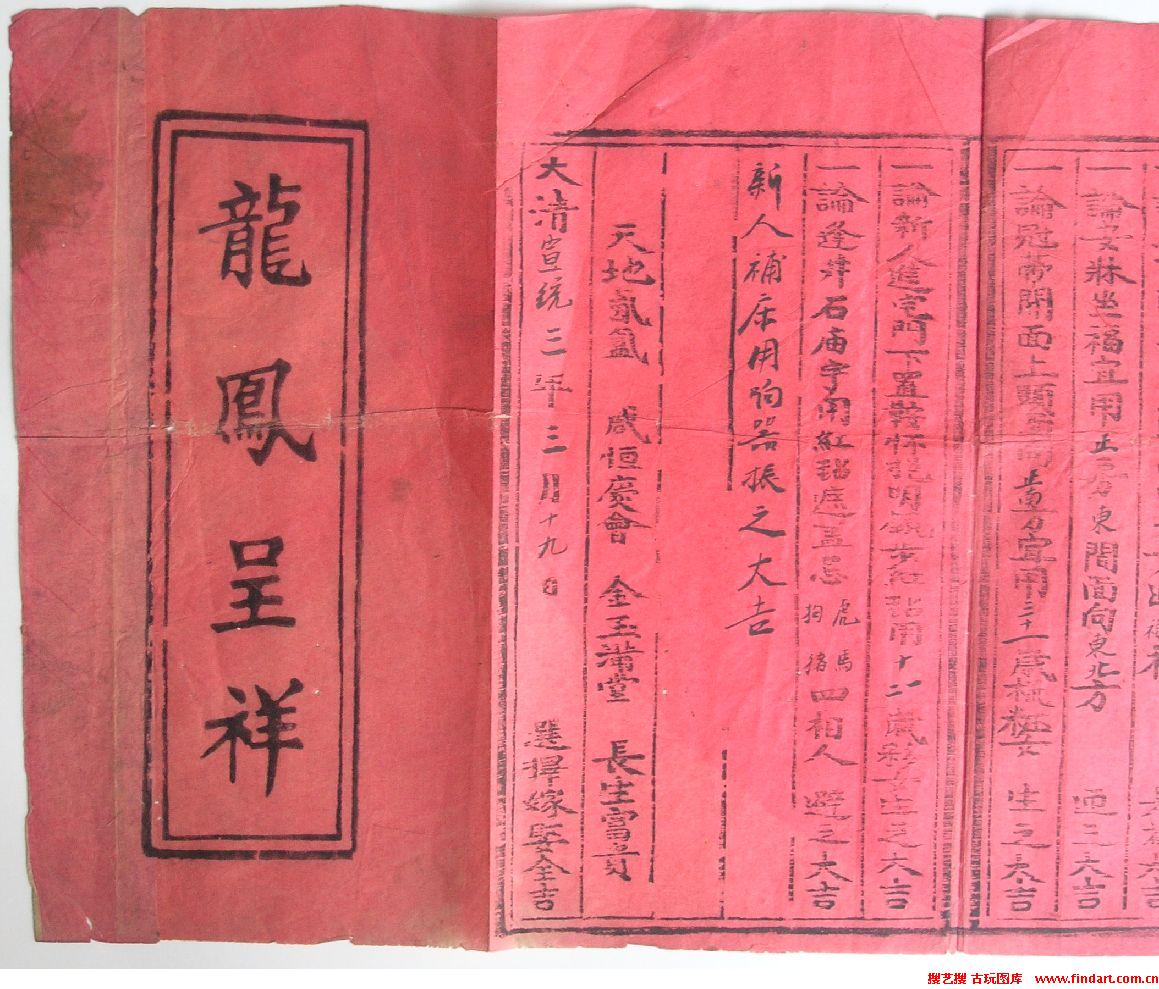 一論安牀坐福宜用正房東間面向東北方 迎之大吉
一論冠帶開面上頭面向 方宜用二十一歲 生之大吉
一論新人進宅門下置鞍懷抱明鏡 用十六歲 之大吉
一論逢井石庙宇用紅毡遮盖忌虎馬狗猪四相人 避之大吉
新人補床用陶器振之大吉
天地氤氲 咸恒慶會 金玉滿堂 長生富貴
大清宣統三年三月十九日 選擇嫁娶全吉
龍鳳呈祥
搜艺搜 古玩图库 www.findart.com.cn